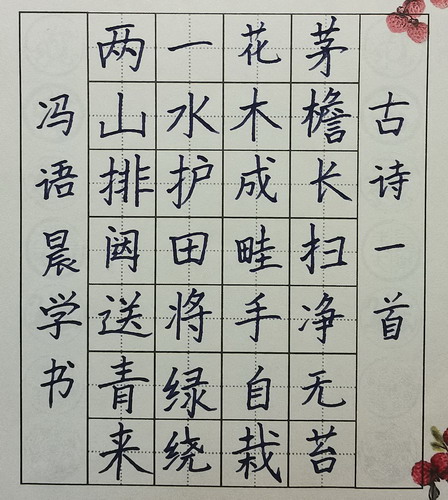 古诗一首
茅檐长扫净无苔
花木成畦手自栽
一水护田将绿绕
两山排闼送青来
冯语晨学书